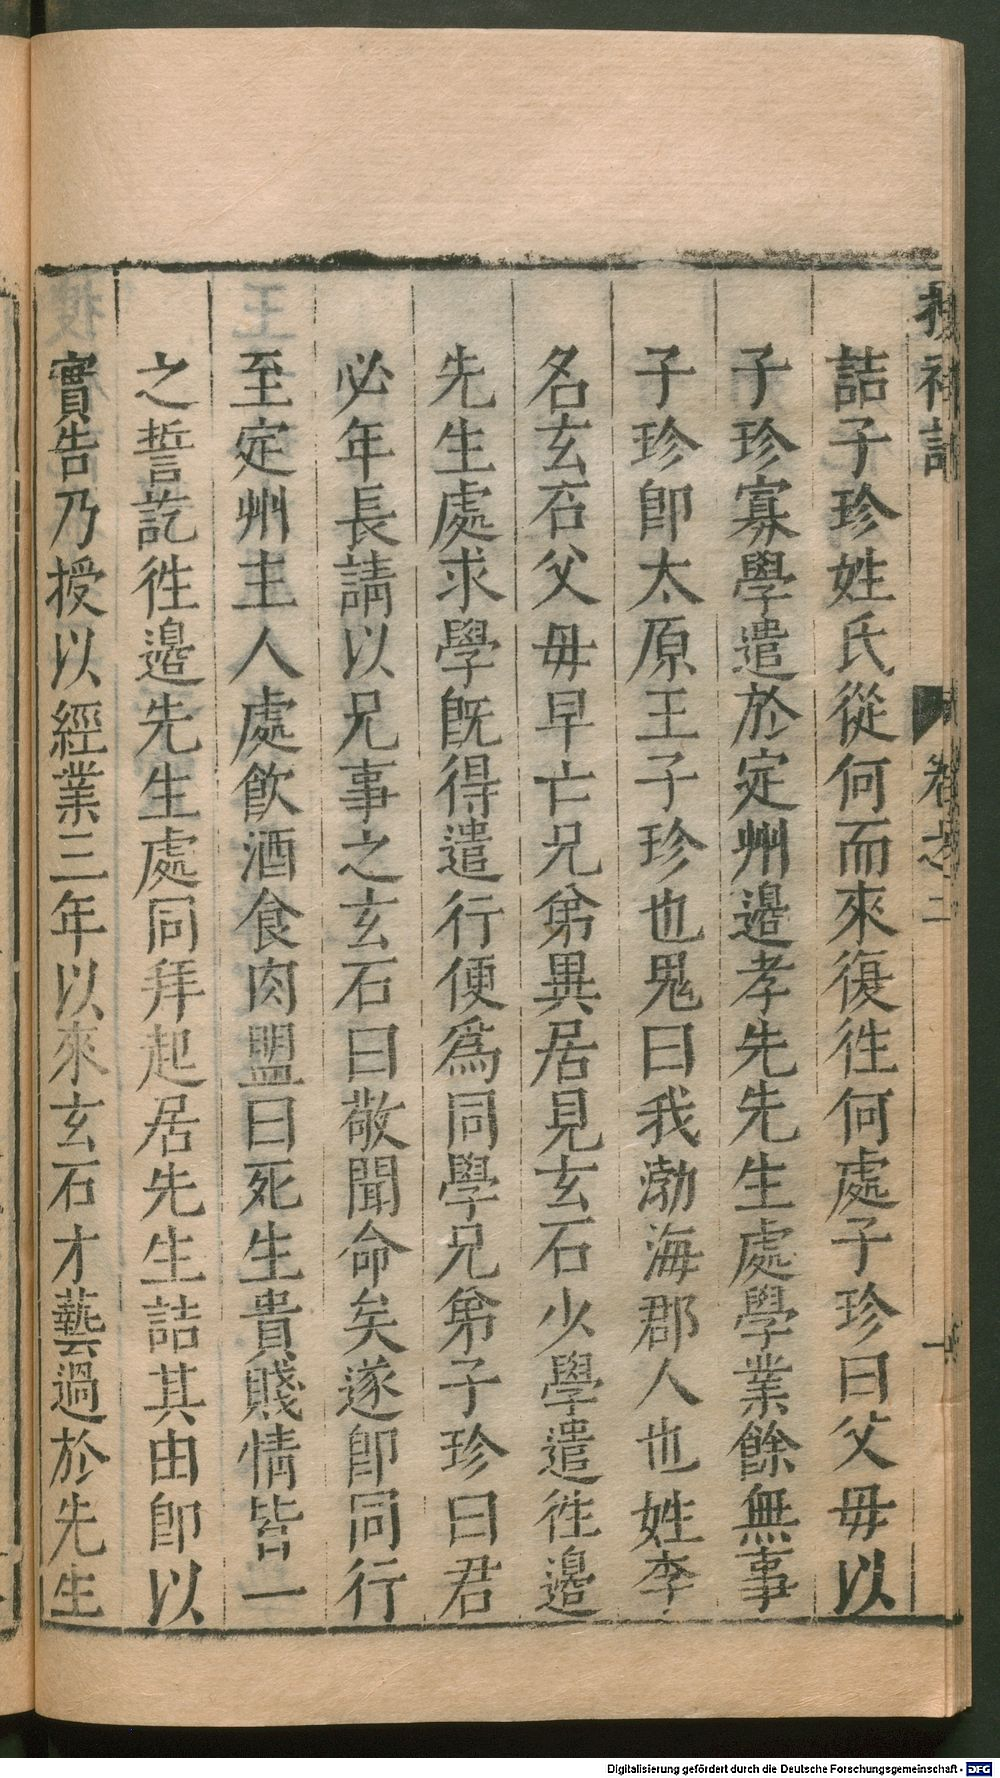 搜神記 卷之二
詰子珍姓氏從何而來復徃何處子珍曰父毋以
子珍寡學遣於定州邉孝先先生處學業餘無事
子珍卽太原王子珍也鬼曰我渤海郡人也姓李
名玄石父毋早亡兄弟異居見玄石少學遣徃邉
先生處求學旣得遣行便爲同學兄弟子珍曰君
必年長請以兄事之玄石曰敬聞命矣遂卽同行
至定州主人處飮酒食肉盟曰死生貴賤情皆一
之誓訖徃邉先生處同拜起居先生詰其由卽以
實告乃授以經業三年以來玄石才藝過於先生
Digitalisierung gefördert durch die Deutsche Forschungsgemeinschaft - DFG